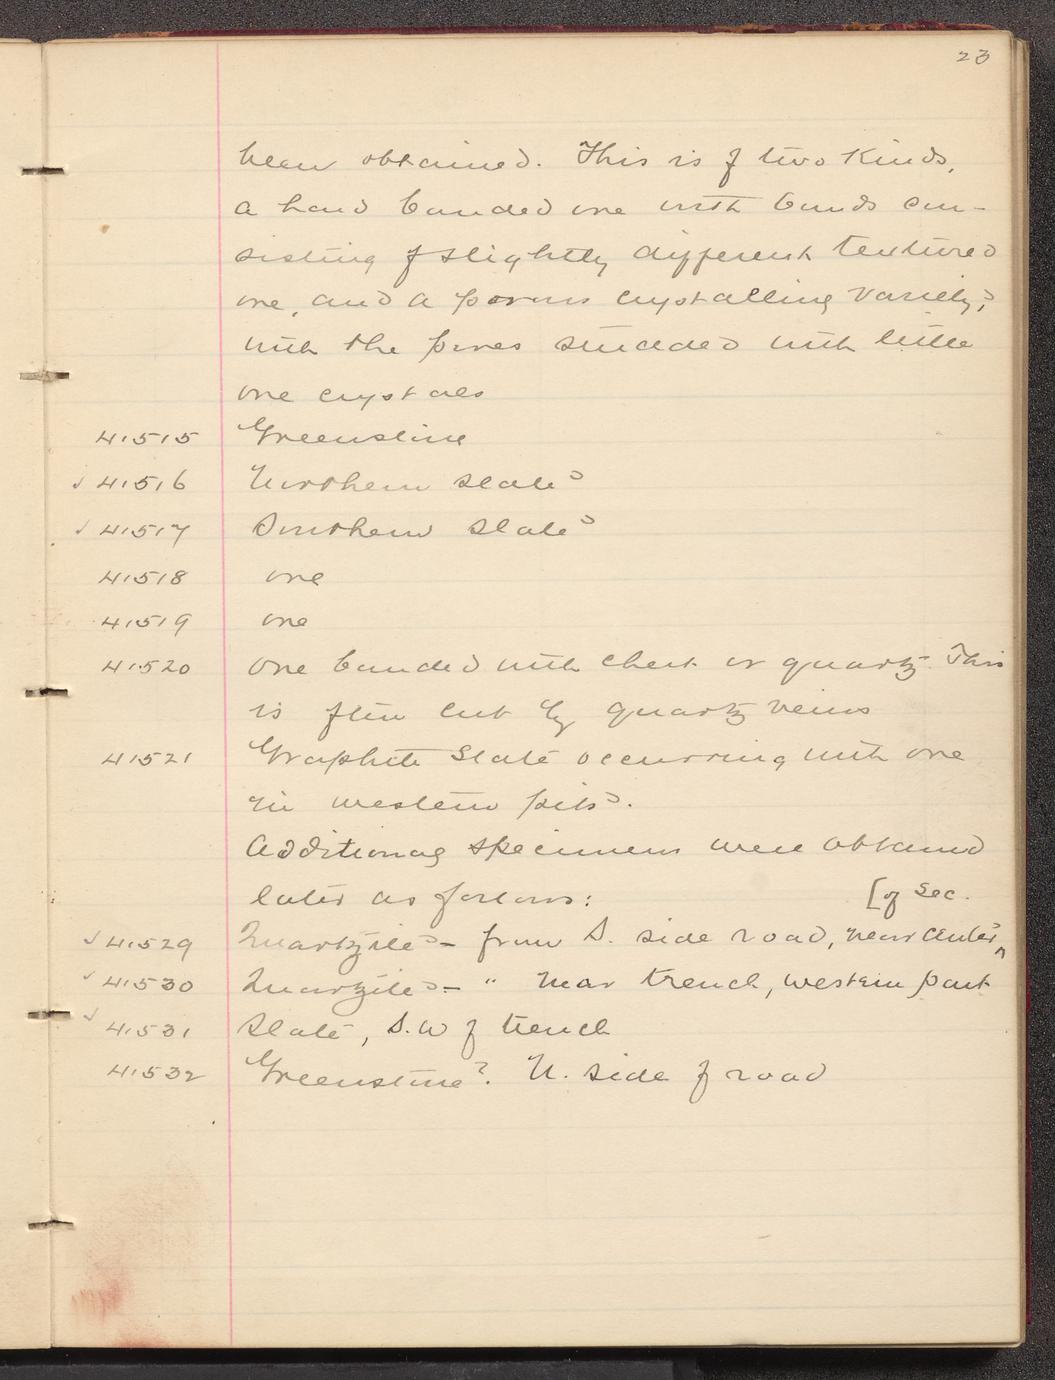 23
been obtained. This is of two kinds,
a hard banded ore with bands con-
sisting of slightly different textured
ore, and a porous crystalling variety,
with the pores studded with little
ore crystals
41515 Greenstone
✓ 41516 Northern slate
✓ 41517 Southern slate
41518 ore
41519 ore
41520 Ore banded with chert or quartz. This
is often cut by quartz veins
41521 Graphite slate occurring with ore
in western pits.
Additional specimens were obtained
later as follows: [of Sec.
✓ 41529 Quartzite - from S. side road, near center ^
✓ 41530 Quartzite - " Near trench, western part
✓ 41531 Slate, S.W of trench
41532 Greenstone?. N. side of road